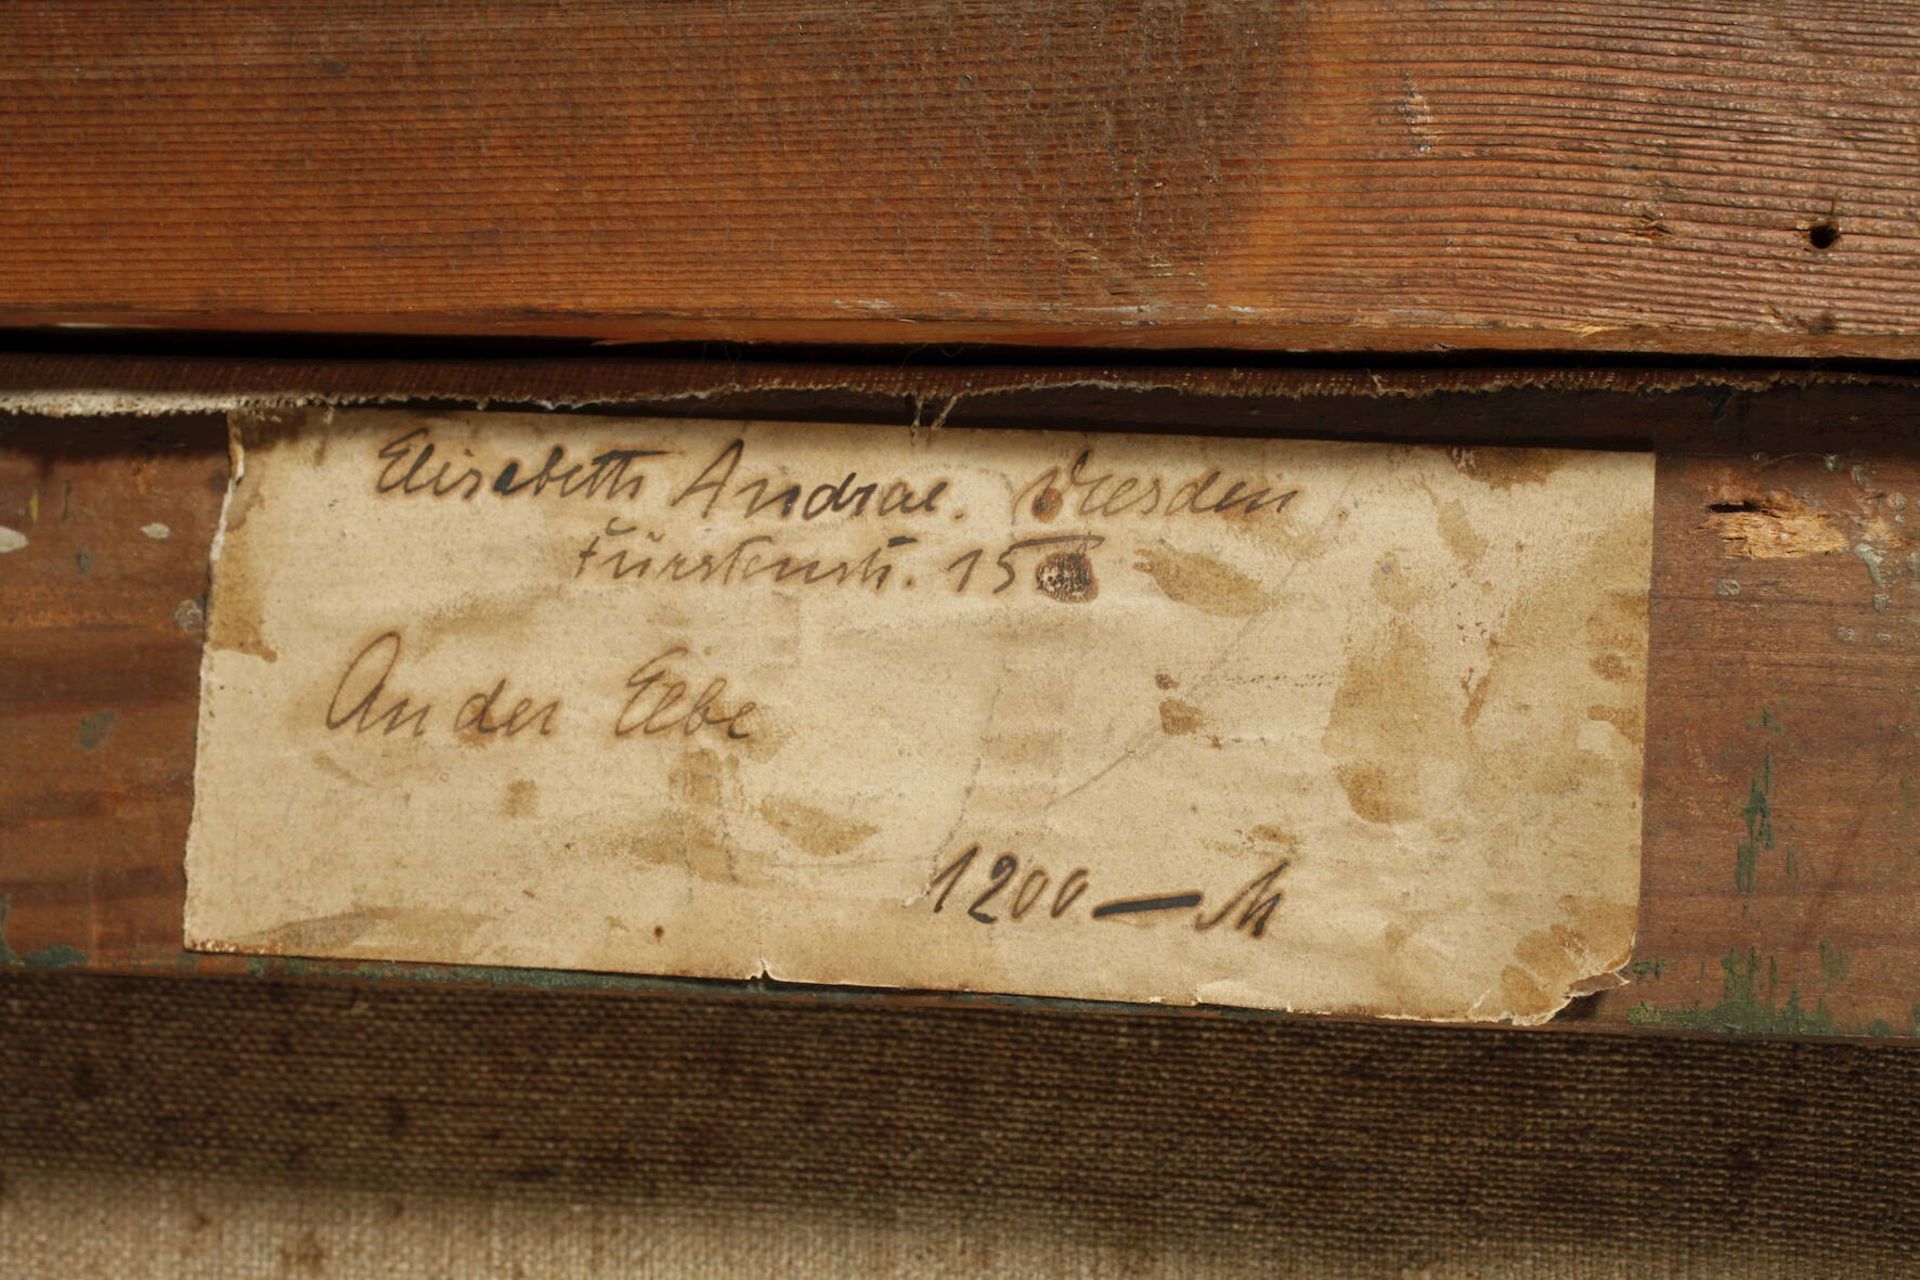 Elisabeth Andrae. Dresden
Fürstenstr. 15
An der Elbe
1200 — M